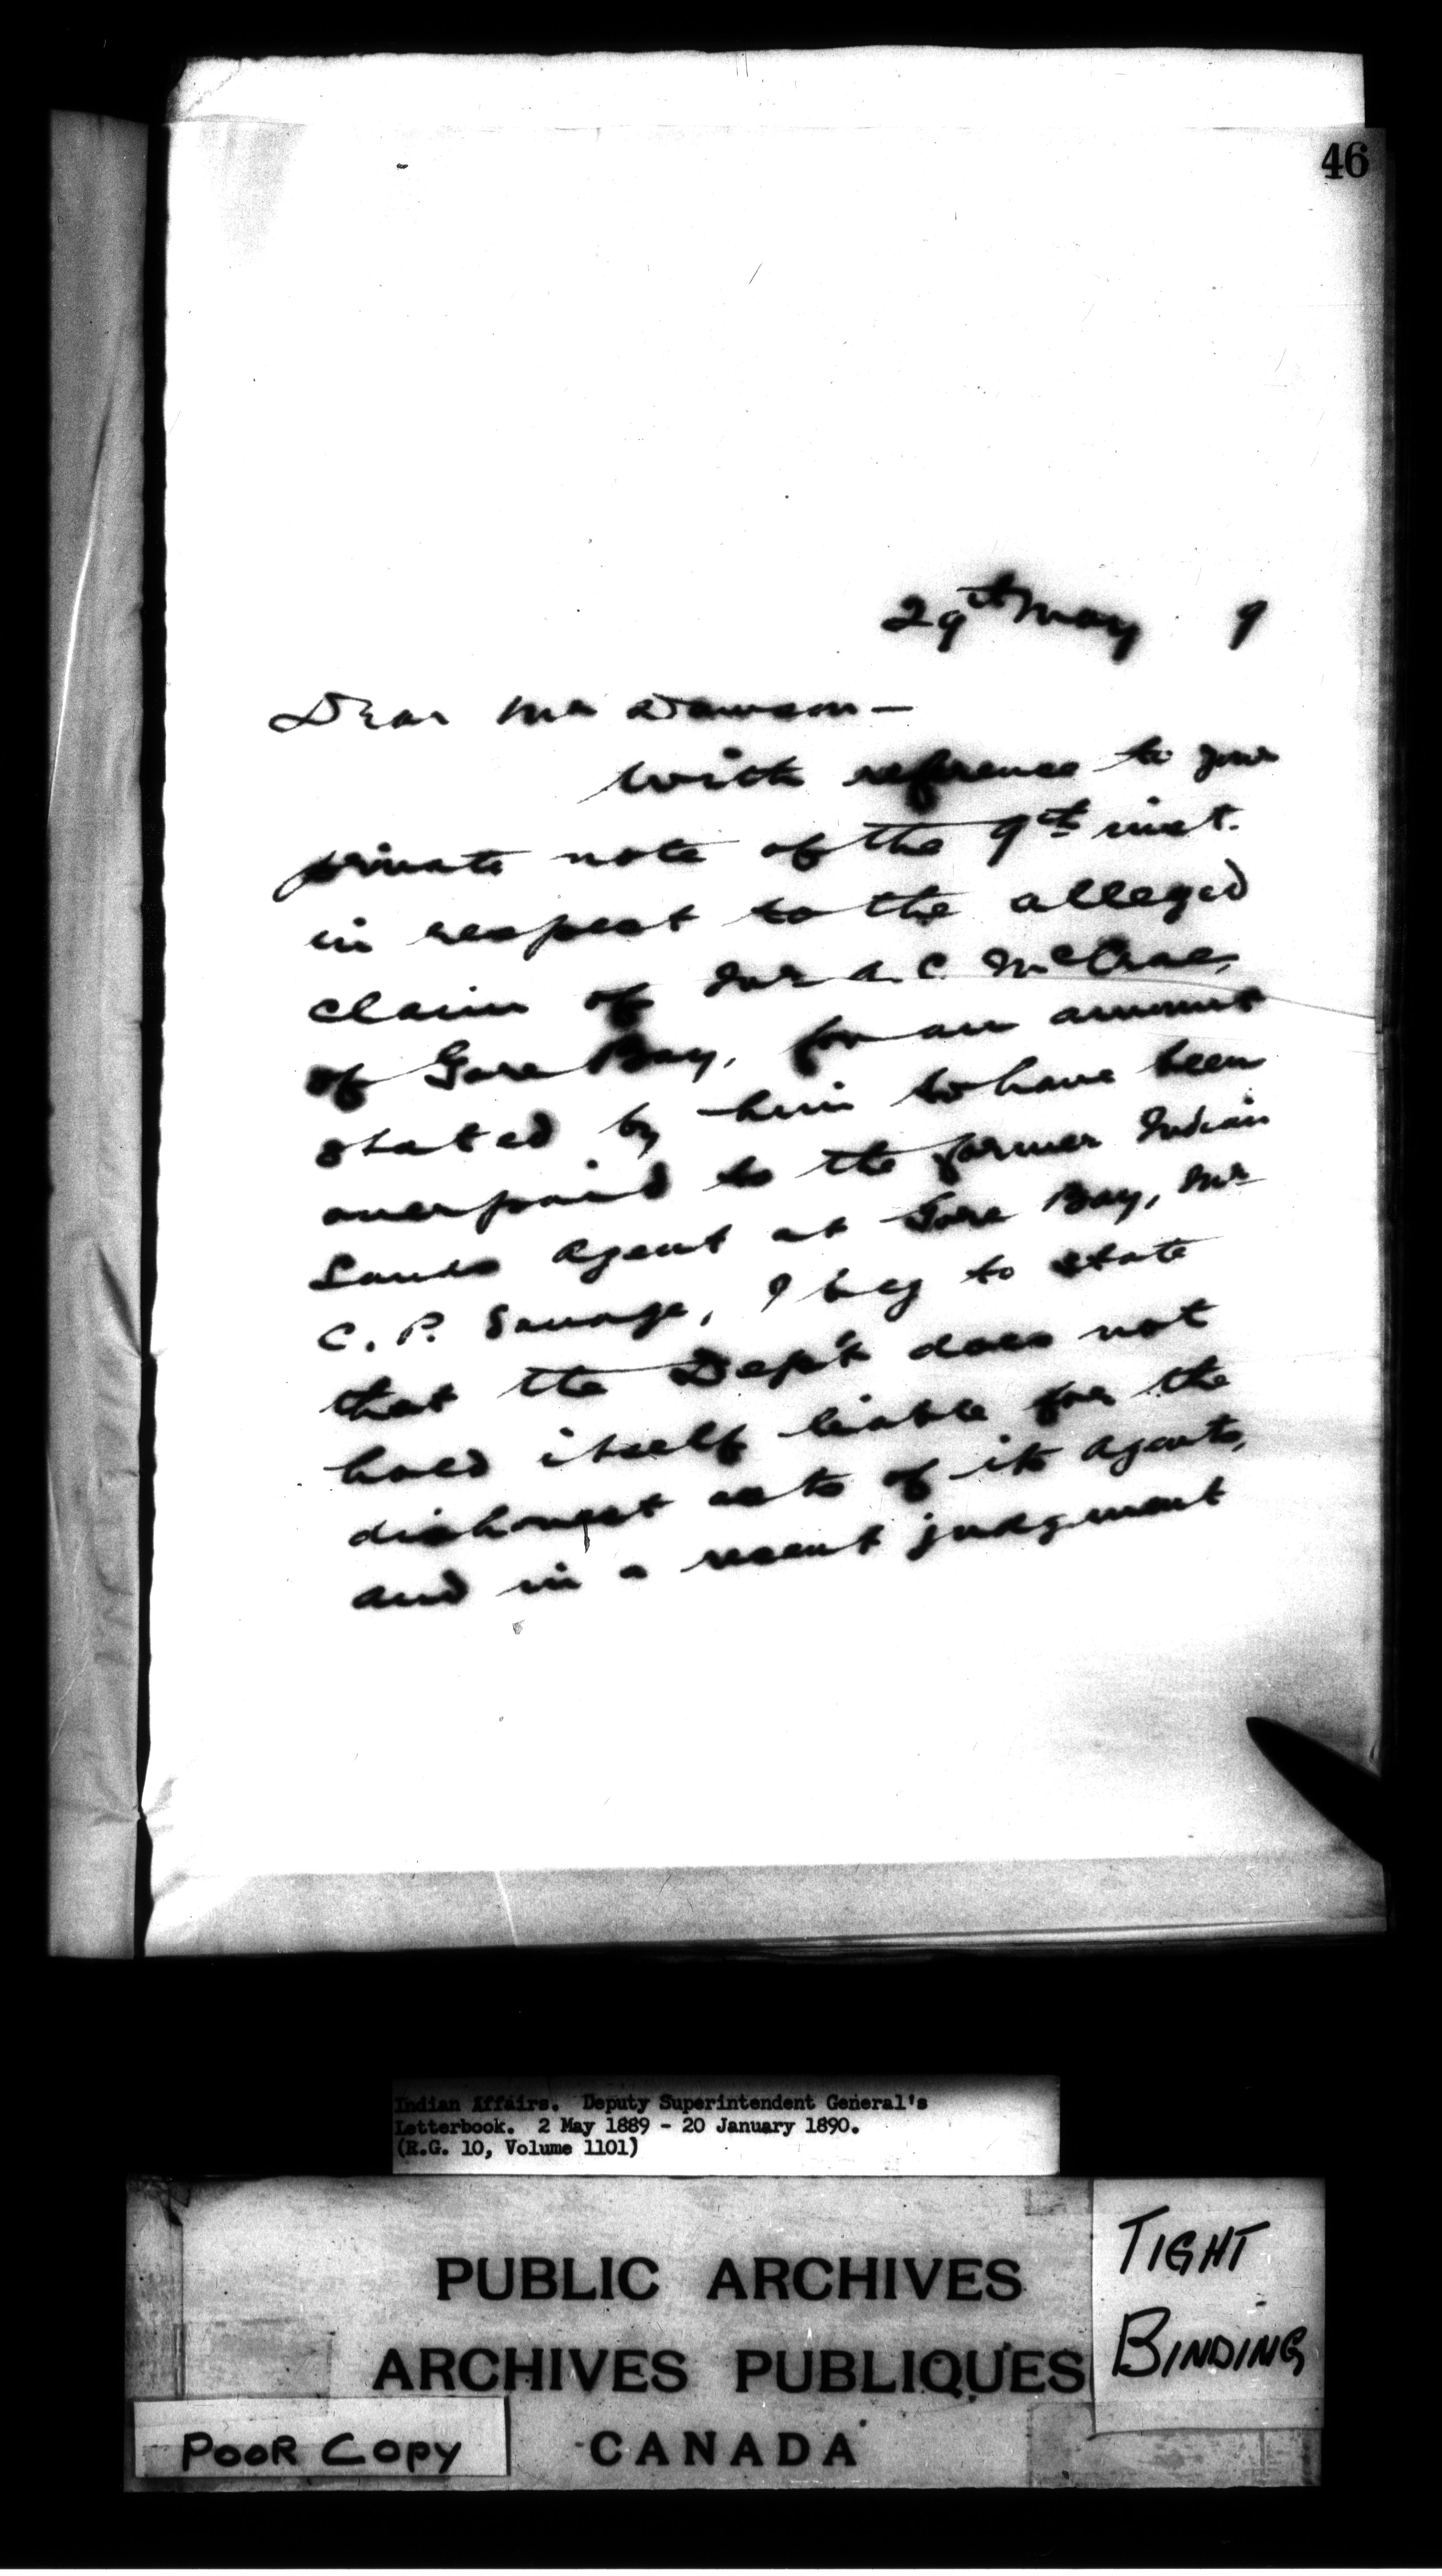 46
29th May 9
Dear Mr Dawson —
With reference to your
private note of the 9th inst.
in respect to the alleged
claim of Mr A. C. McCrae,
of Gore Bay, for an amount
stated by him to have been
overpaid to the former Indian
Lands Agent at Gore Bay, Mr
C. P. Savage, I beg to state
that the Dep't does not
hold itself liable for the
dishonest acts of its Agents,
and in a recent judgment
Indian Affairs. Deputy Superintendent General's
Letterbook. 2 May 1889 - 20 January 1890.
(R.G. 10, Volume 1101)
PUBLIC ARCHIVES
ARCHIVES PUBLIQUES
CANADA
TIGHT
BINDING
POOR COPY